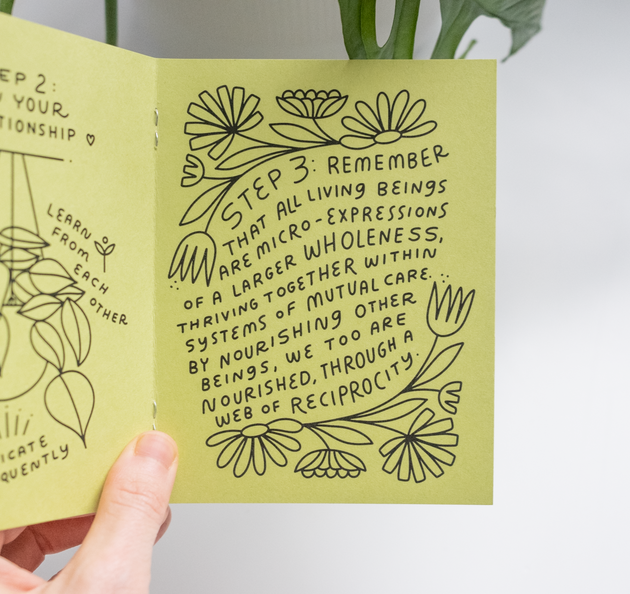 EP 2:
YOUR
TIONSHIP
LEARN
FROM
EACH
OTHER
ICATE
QUENTLY
STEP 3: REMEMBER
THAT ALL LIVING BEINGS
ARE MICRO-EXPRESSIONS
OF A LARGER WHOLENESS,
THRIVING TOGETHER WITHIN
SYSTEMS OF MUTUAL CARE.
BY NOURISHING OTHER
BEINGS, WE TOO ARE
NOURISHED, THROUGH A
WEB OF RECIPROCITY.